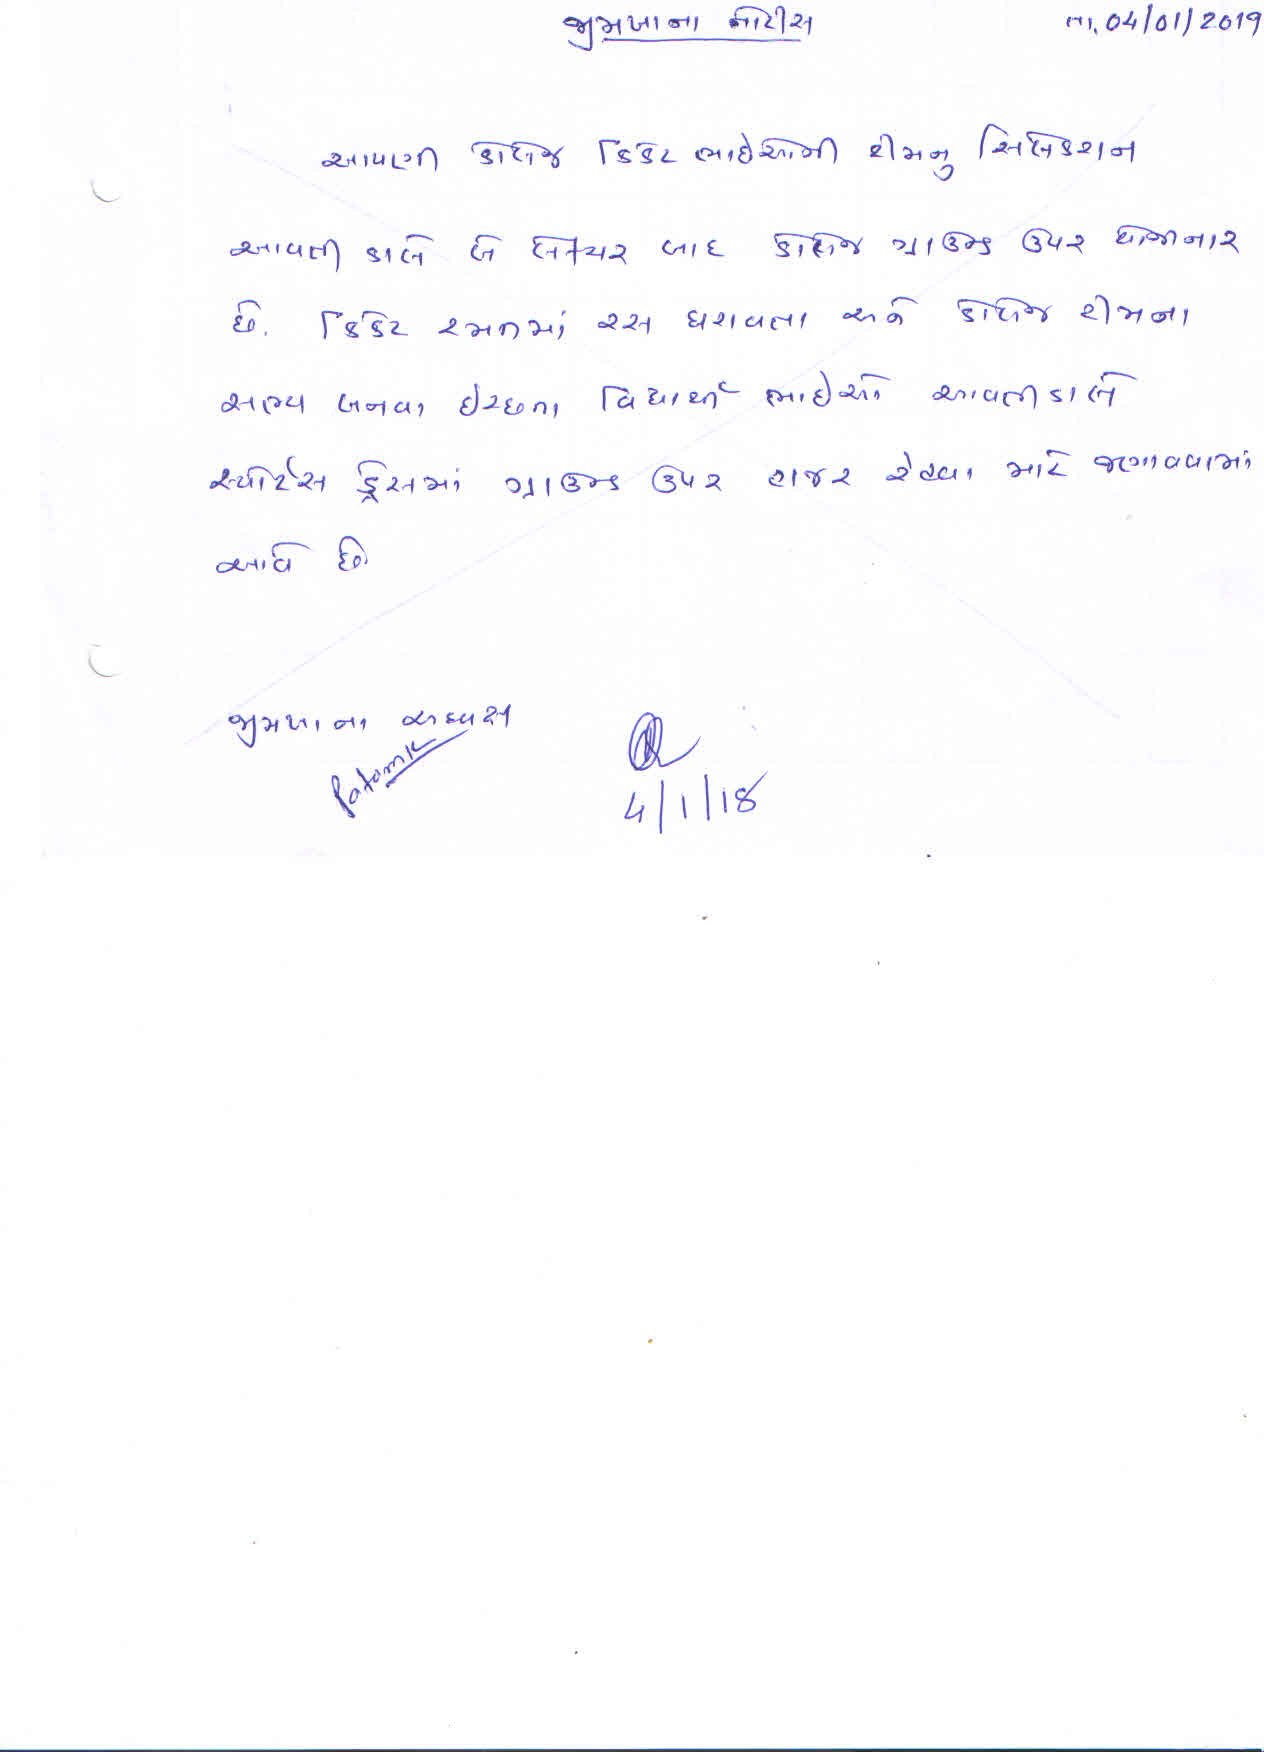 જીમખાના નોટીસ તા. 04/01/2019
આપણી કોલેજ ક્રિકેટ ભાઈઓની ટીમનુ સિલેકશન
આવતી કાલે બે લેક્ચર બાદ કોલેજ ગ્રાઉન્ડ ઉપર યોજાનાર
છે. ક્રિકેટ રમતમાં રસ ધરાવતા અને કોલેજ ટીમના
સભ્ય બનવા ઈચ્છતા વિદ્યાર્થી ભાઈઓ આવતીકાલે
સ્પોર્ટસ ડ્રેસમાં ગ્રાઉન્ડ ઉપર હાજર રહેવા માટે જણાવવામાં
આવે છે.
જીમખાના અધ્યક્ષ
4/1/18